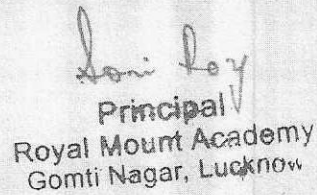 Soni Roy
Principal
Royal Mount Academy
Gomti Nagar, Lucknow